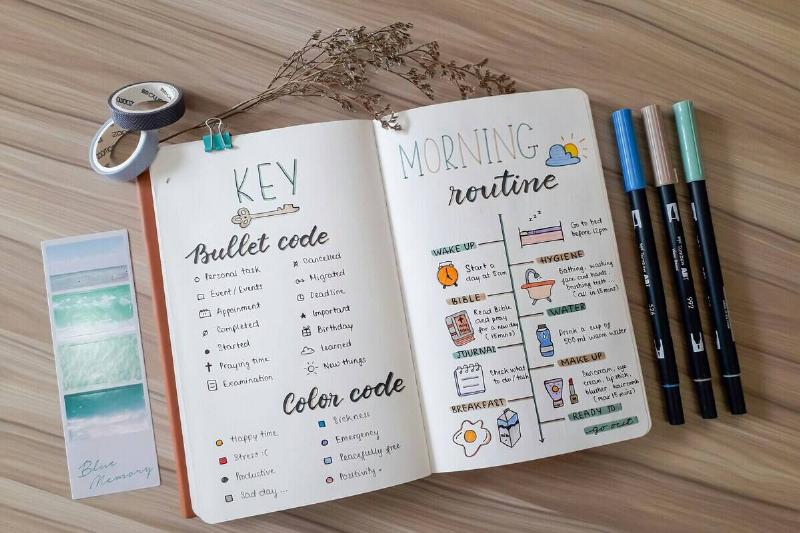 KEY
Bullet code
Personal task
Event/Events
Appoinment
Completed
Started
Praying time
Examination
Cancelled
Migrated
Deadline
Important
Birthday
Learned
New things
Color code
Happy time
Stress :(
Productive
Sad day ...
Sickness
Emergency
Peacefully free
Positivity
MORNING
routine
zzz
Go to bed
before 12pm
WAKE UP
Start a
day at 5am
HYGIENE
Bathing, washing
face and hands,
brushing teeth...
(all in 15mins)
BIBLE
Read Bible
and pray
for a new day
(15mins)
WATER
Drink a cup of
500ml warm water
JOURNAL
Check what
to do/task
MAKE UP
Suncream, eye
cream, lipstick,
blusher, hair comb
(max 15mins)
BREAKFAST
READY TO
go out
Blue
Memory
992